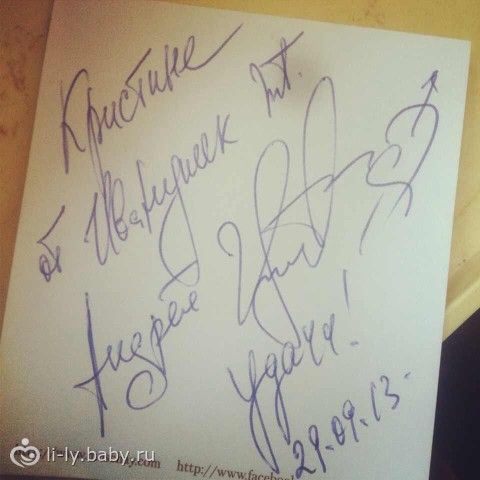 Кристине
от Иванушек Int.
Андрей
Удачи!
29.09.13.
.com http://www.facebo
li-ly.baby.ru